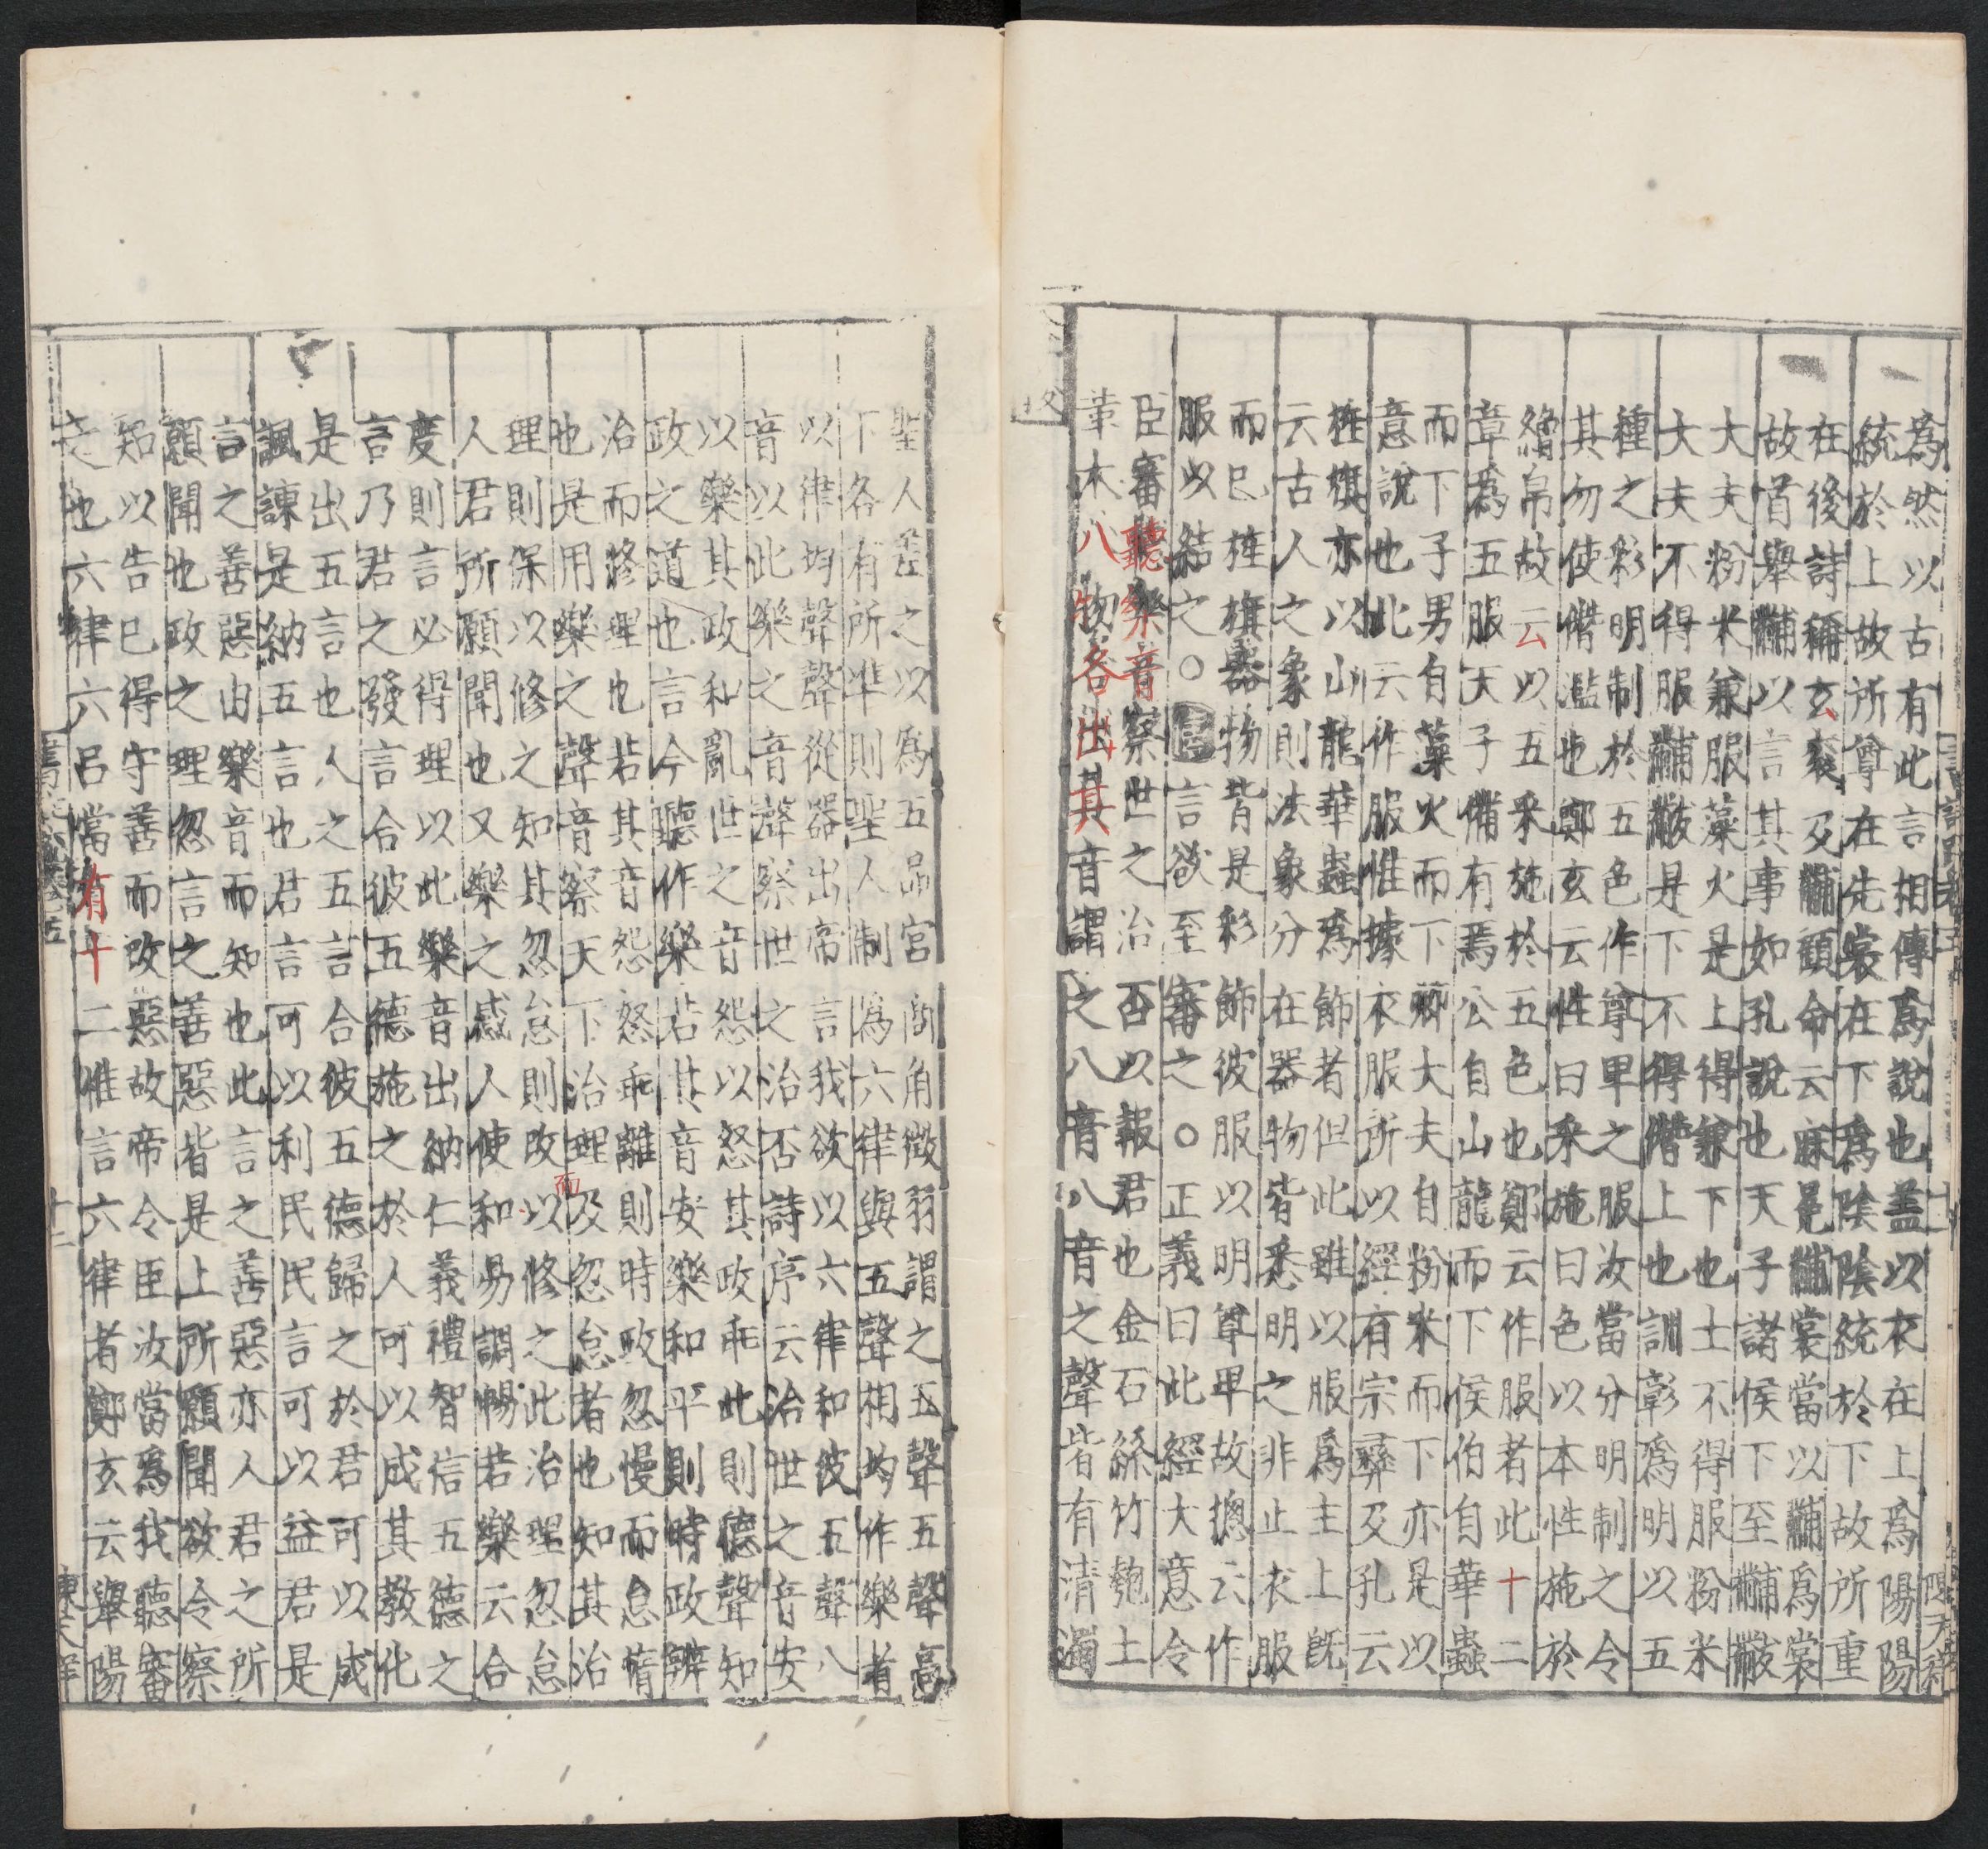 為然以古有此言相傳為說也蓋以衣在上為陽陽
統於上故所尊在先裳在下為陰陰統於下故所重
在後詩稱玄袞及黼顧命云麻冕黼裳當以黼為裳
故首舉黼以言其事如孔說也天子諸侯下至黼黻
大夫粉米兼服藻火是上得兼下也士不得服粉米
大夫不得服黼黻是下不得僭上也訓彰為明以五
種之彩明制於五色作尊卑之服汝當分明制之令
其勿使僭濫也鄭玄云性曰采施曰色以本性施於
繒帛故云以五采施於五色也鄭云作服者此十二
章為五服天子備有焉公自山龍而下侯伯自華蟲
而下子男自藻火而下卿大夫自粉米而下亦是以
意說也此云作服惟據衣服所以經有宗彝及孔云
旌旗亦以山龍華蟲為飾者但此雖以服為主上既
云古人之象則法象分在器物皆悉明之非止衣服
而已旌旗器物皆是彩飾彼服以明尊卑故摠云作
服以結之○言欲至審之○正義曰此經大意令
臣審聽樂音察世之治否以報君也金石絲竹匏土
革木八物各出其音謂之八音八音之聲皆有清濁
聖人差之以為五品宮商角徵羽謂之五聲五聲高
下各有所準則聖人制為六律與五聲相均作樂者
以律均聲聲從器出帝言我欲以六律和彼五聲八
音以此樂之音聲察世之治否詩序云治世之音安
以樂其政和亂世之音怨以怒其政乖此則德聲知
政之道也言今聽作樂若其音安樂和平則時政辨
治而修理也若其音怨怒乖離則時政忽慢而怠惰
也是用樂之聲音察天下治理及忽怠者也知其治
理則保以修之知其忽怠則改以修之此治理忽怠
人君所願聞也又樂之感人使和易調暢若樂云合
度則言必得理以此樂音出納仁義禮智信五德之
言乃君之發言合彼五德施之於人可以成其教化
是出五言也人之五言合彼五德歸之於君可以成
諷諫是納五言也君言可以利民民言可以益君是
言之善惡由樂音而知也此言之善惡亦人君之所
願聞也政之理忽言之善惡皆是上所願聞欲令察
知以告已得守善而改惡故帝令臣汝當為我聽審
之也六律六呂當有十二惟言六律者鄭玄云舉陽